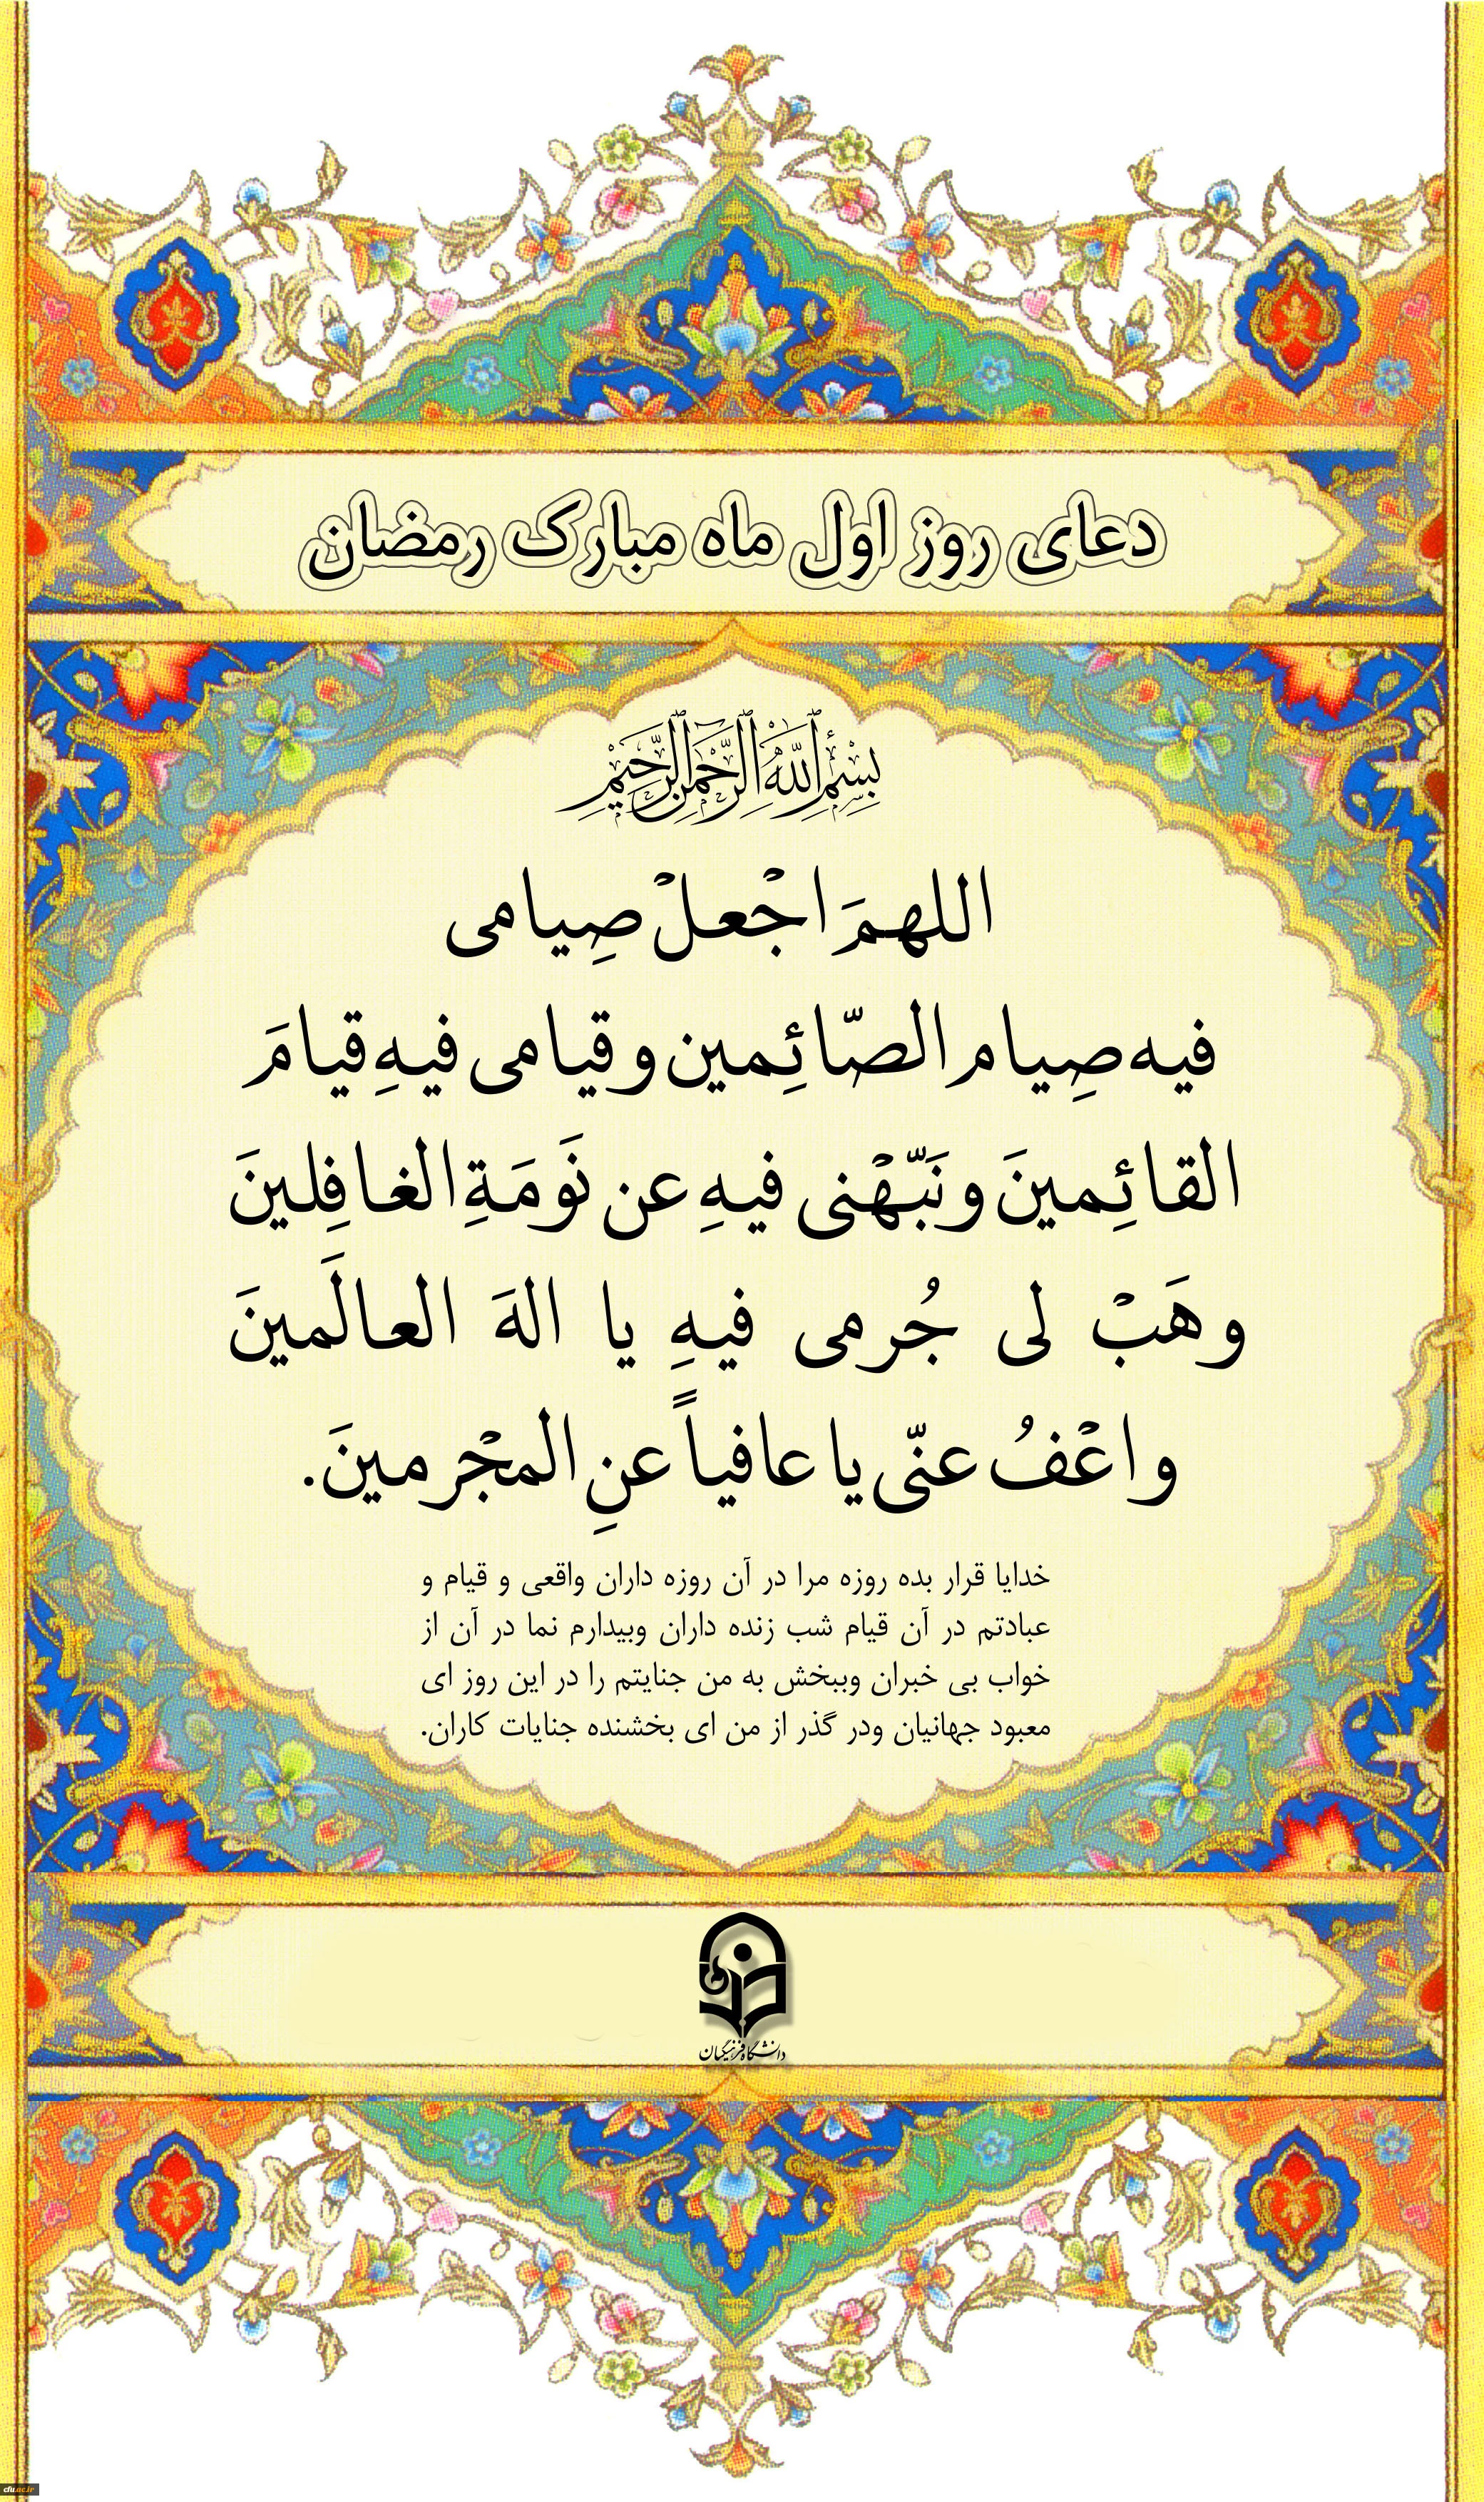 دعای روز اول ماه مبارک رمضان
بِسْمِ اللَّهِ الرَّحْمَنِ الرَّحِيمِ
اللهمَ اجْعلْ صِیامی
فیه صِیام الصّائِمین و قیامی فیهِ قیامَ
القائِمینَ و نَبّهْنی فیهِ عن نَومَةِ الغافِلینَ
و هَبْ لی جُرمی فیهِ یا الهَ العالَمینَ
و اعْفُ عنّی یا عافیاً عنِ المجْرمینَ.
خدایا قرار بده روزه مرا در آن روزه داران واقعی و قیام و
عبادتم در آن قیام شب زنده داران وبیدارم نما در آن از
خواب بی خبران وببخش به من جنایتم را در این روز ای
معبود جهانیان ودر گذر از من ای بخشنده جنایات کاران.
دانشگاه فرهنگیان
cfu.ac.ir